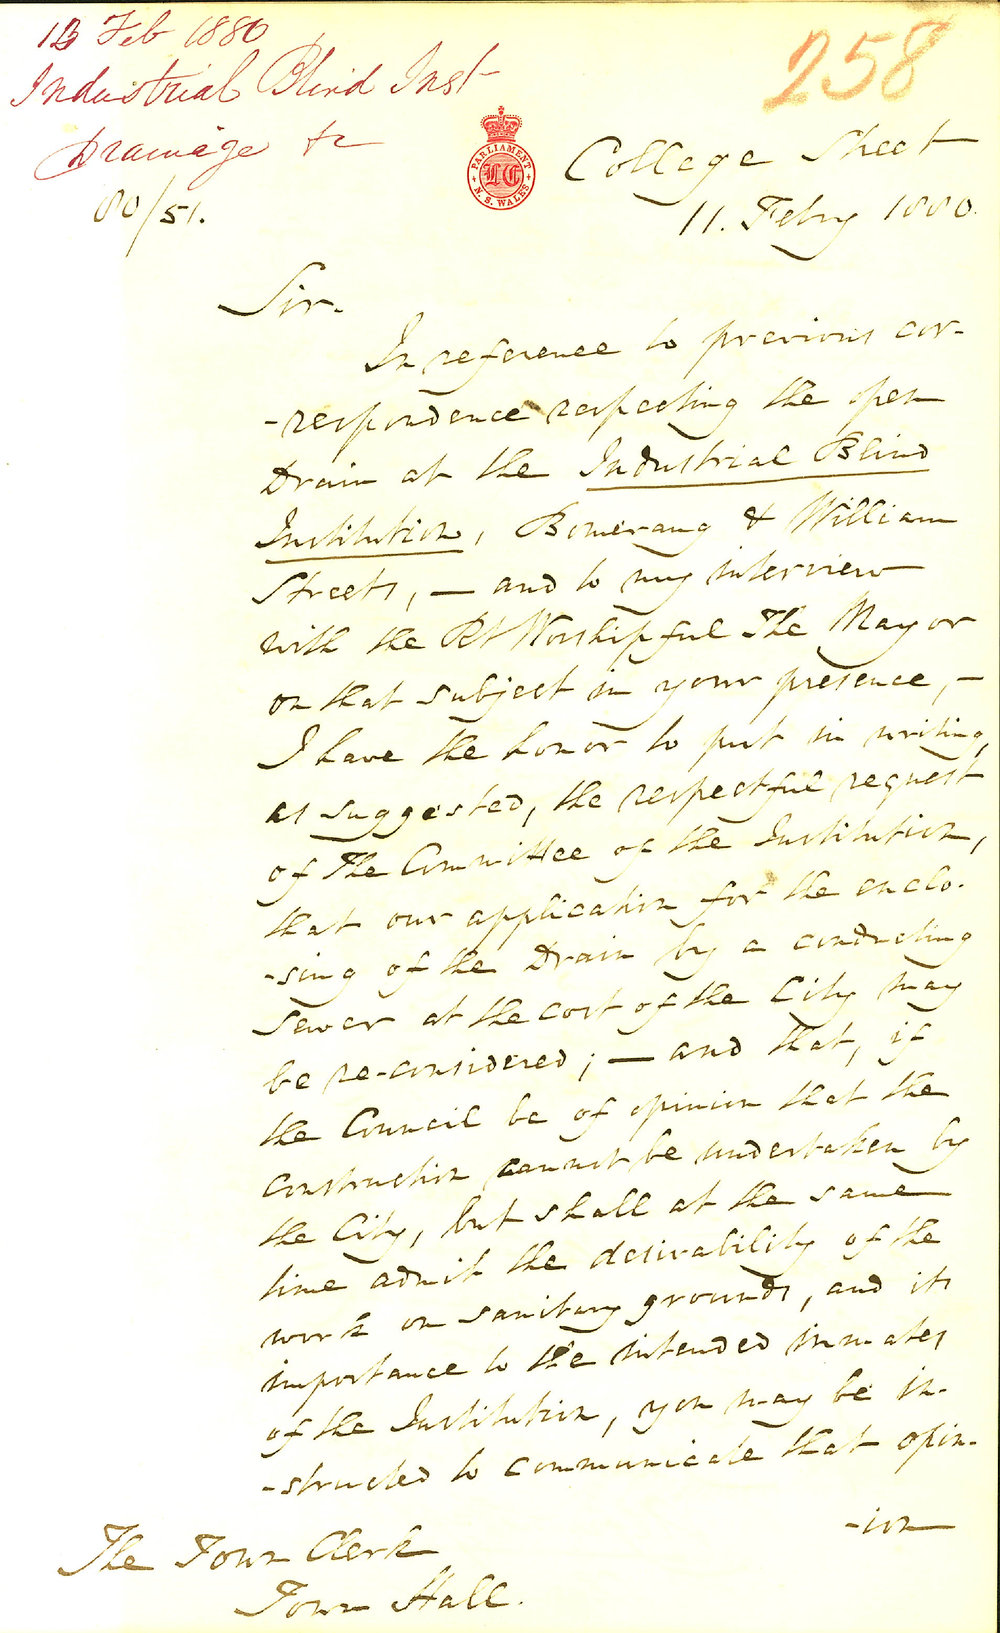 13 Feb 1880
Industrial Blind Inst
Drainage &c
80/51.
258
PARLIAMENT
LC
N. S. WALES
College Street
11. Febry 1880.
Sir.
In reference to previous cor-
-respondence respecting the open
Drain at the Industrial Blind
Institution, Bomerang & William
Streets, — and to my interview
with the Rt Worshipful The Mayor
on that subject in your presence, —
I have the honor to put in writing,
as suggested, the respectful request
of The Committee of the Institution,
that our application for the enclo-
-sing of the Drain by a conducting
Sewer at the cost of the City may
be re-considered; — and that, if
the Council be of opinion that the
construction cannot be undertaken by
the City, but shall at the same
time admit the desirability of the
work on sanitary grounds, and its
importance to the intended inmates
of the Institution, you may be in-
-structed to communicate that opin-
-ion
The Town Clerk
Town Hall.